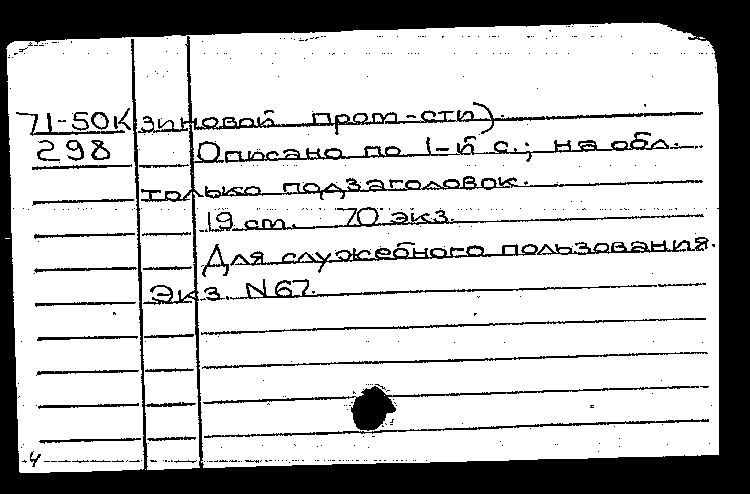 71-50К зиновой пром-сти).
298 Описано по 1-й с.; на обл.
только подзаголовок.
19 cm. 70 экз.
Для служебного пользования.
Экз. N67.
4